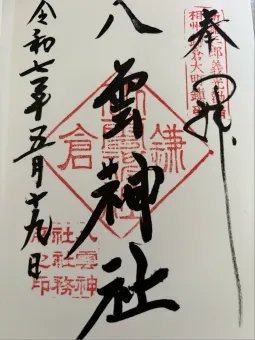 奉拝
八雲神社
鎌倉
八雲神
社社務
所之印
令和七年五月十九日